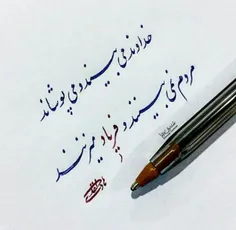 خداوند می بیند و می پوشاند
مردم نمی بینند و فریاد میزنند